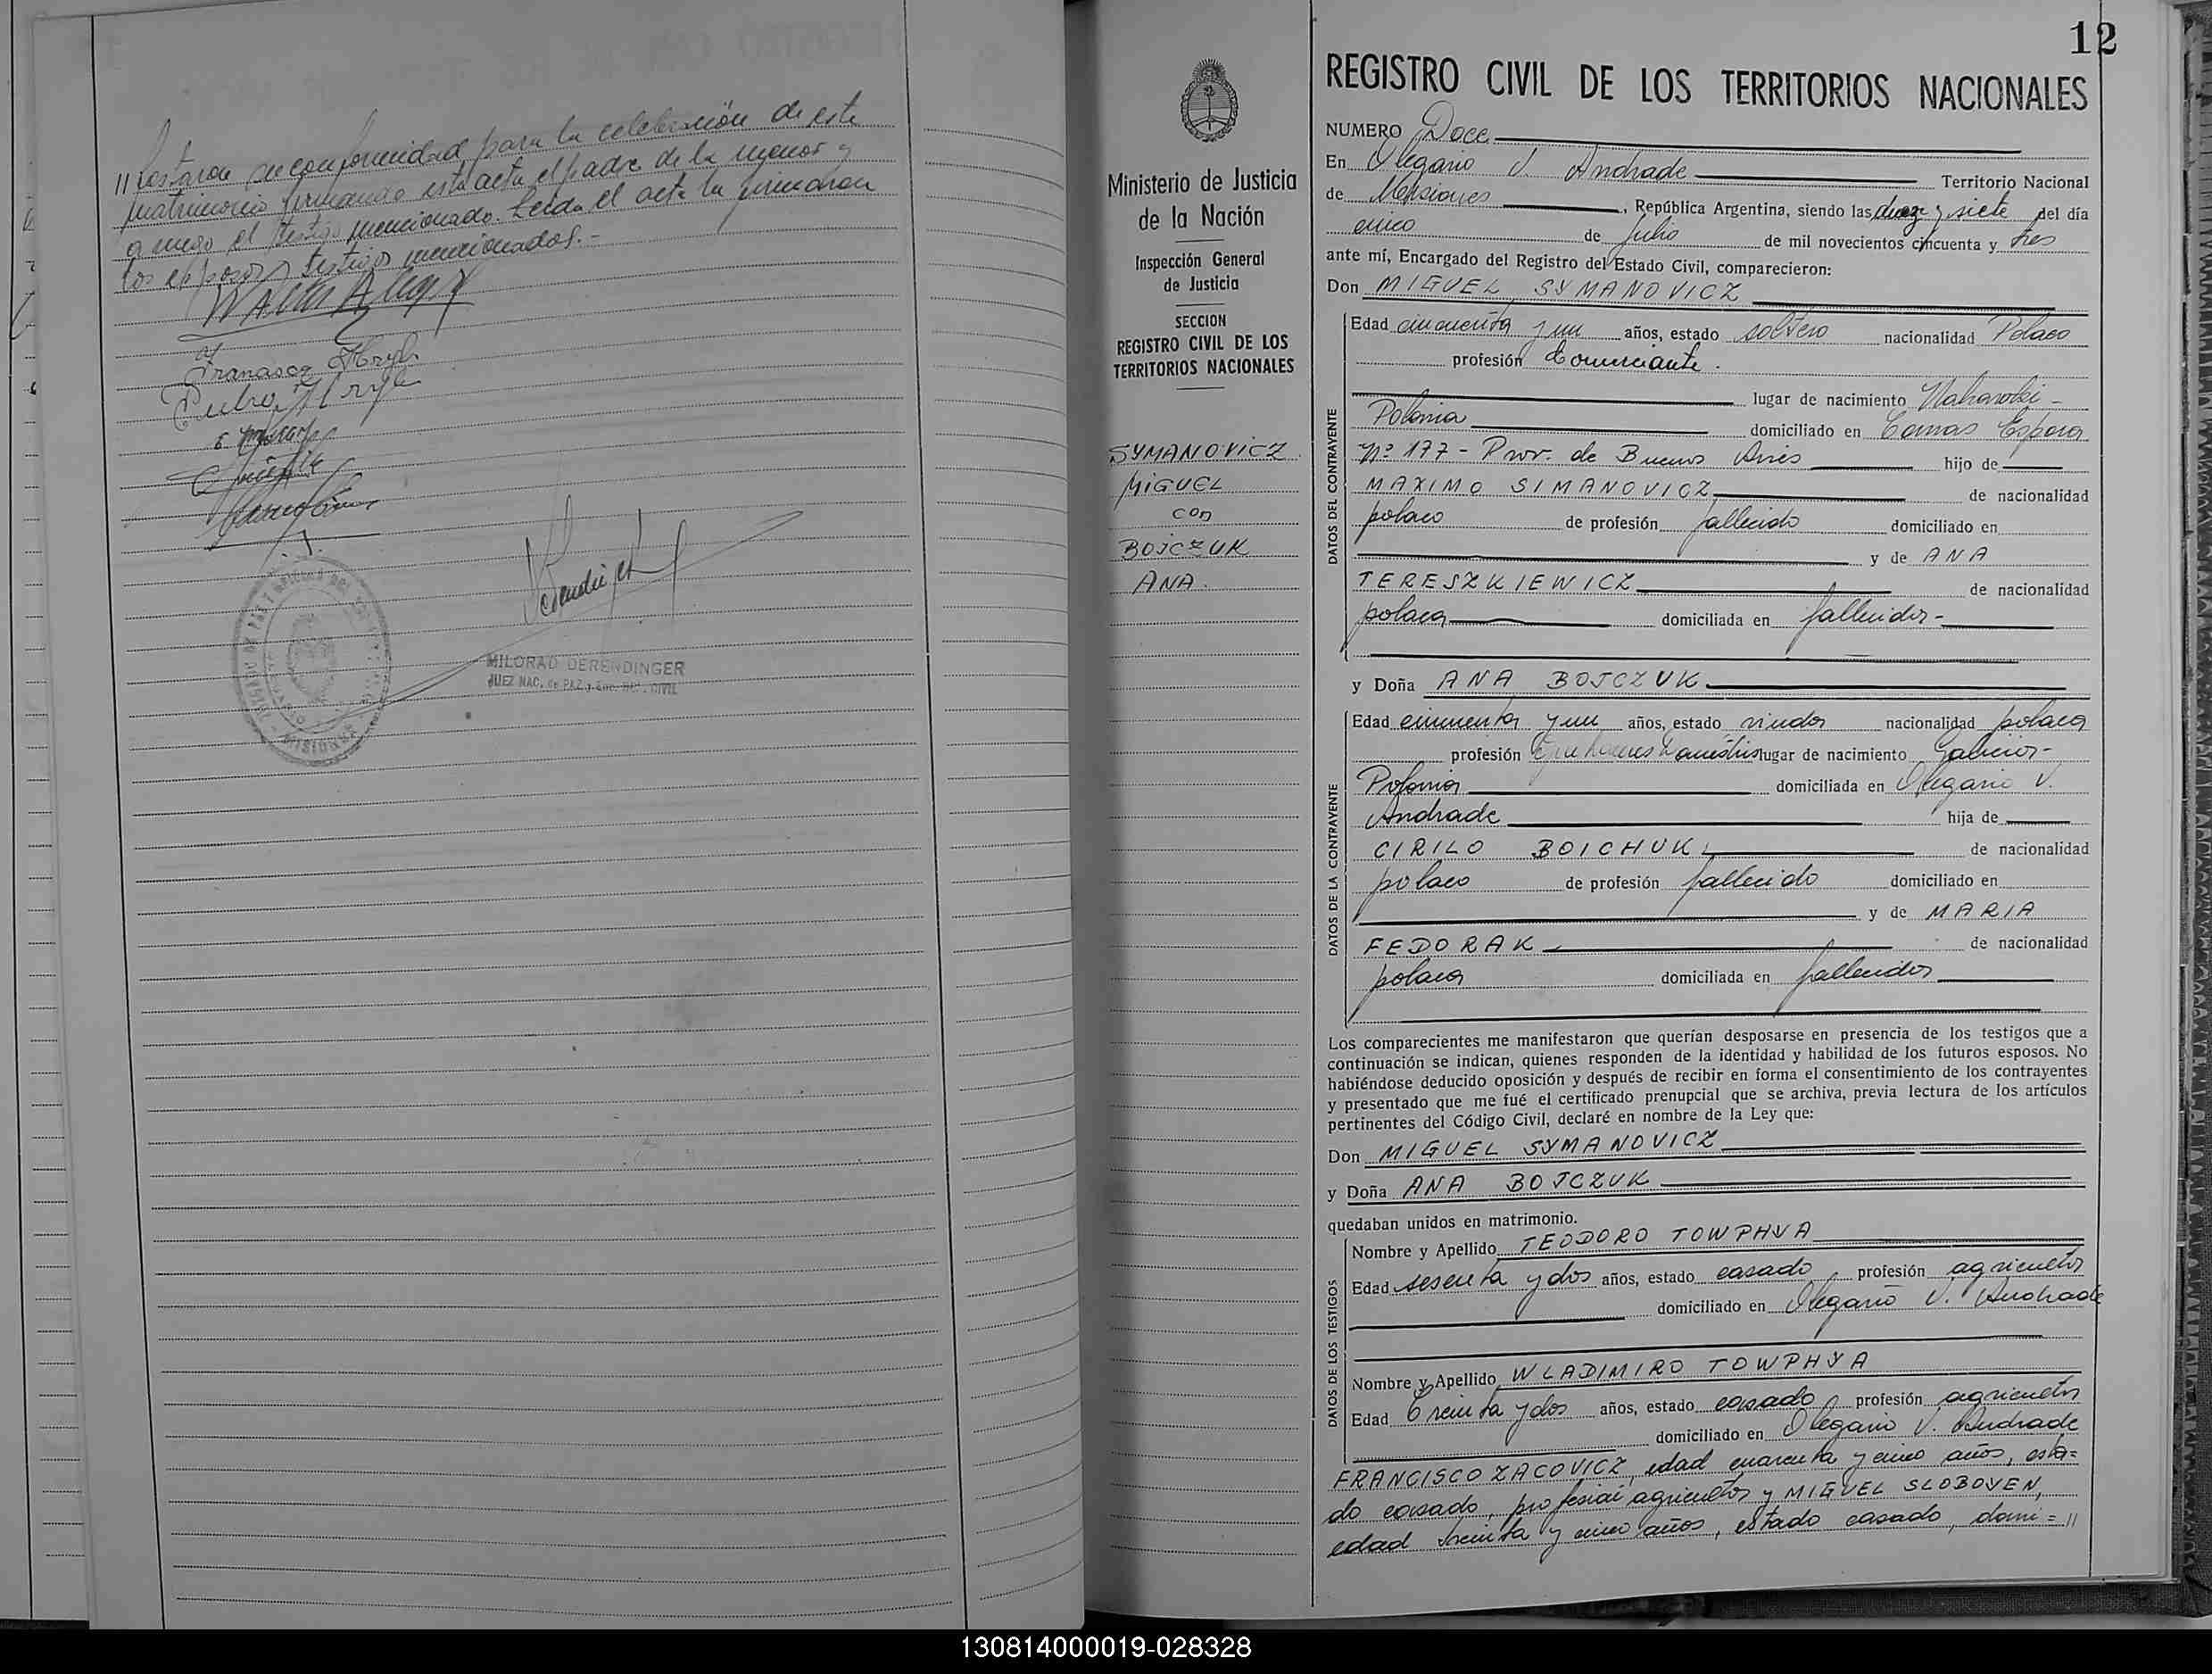 // prestaron su conformidad para la celebración de este
matrimonio firmando esta acta el padre de la menor y
a ruego el testigo mencionado. Leída el acta la firmaron
los esposos y testigos mencionados.-
Pedro Hryb
MILORAD DERENDINGER
JUEZ NAC. de PAZ y Enc. REG. CIVIL
MISIONES
Ministerio de Justicia
de la Nación
Inspección General
de Justicia
SECCION
REGISTRO CIVIL DE LOS
TERRITORIOS NACIONALES
SYMANOVICZ
MIGUEL
con
BOJCZUK
ANA.
12
REGISTRO CIVIL DE LOS TERRITORIOS NACIONALES
NUMERO Doce
En Olegario V. Andrade Territorio Nacional
de Misiones, República Argentina, siendo las diez y siete del día
cinco de Julio de mil novecientos cincuenta y tres
ante mí, Encargado del Registro del Estado Civil, comparecieron:
Don MIGUEL SYMANOVICZ
DATOS DEL CONTRAYENTE
Edad cincuenta y un años, estado soltero nacionalidad Polaco
profesión Comerciante.
lugar de nacimiento
Polonia domiciliado en Comas Espora
Nº 177 - Prov. de Buenos Aires hijo de
MAXIMO SIMANOVICZ de nacionalidad
polaco de profesión fallecido domiciliado en
y de ANA
TERESZKIEWICZ de nacionalidad
polaca domiciliada en fallecida-
y Doña ANA BOJCZUK
DATOS DE LA CONTRAYENTE
Edad cincuenta y un años, estado viuda nacionalidad polaca
profesión quehaceres domésticos lugar de nacimiento Galicia-
Polonia domiciliada en Olegario V.
Andrade hija de
CIRILO BOICHUK de nacionalidad
polaco de profesión fallecido domiciliado en
y de MARIA
FEDORAK de nacionalidad
polaca domiciliada en fallecida
Los comparecientes me manifestaron que querían desposarse en presencia de los testigos que a
continuación se indican, quienes responden de la identidad y habilidad de los futuros esposos. No
habiéndose deducido oposición y después de recibir en forma el consentimiento de los contrayentes
y presentado que me fué el certificado prenupcial que se archiva, previa lectura de los artículos
pertinentes del Código Civil, declaré en nombre de la Ley que:
Don MIGUEL SYMANOVICZ
y Doña ANA BOJCZUK
quedaban unidos en matrimonio.
DATOS DE LOS TESTIGOS
Nombre y Apellido TEODORO TOWPHYA
Edad sesenta y dos años, estado casado profesión agricultor
domiciliado en Olegario V. Andrade
Nombre y Apellido WLADIMIRO TOWPHYA
Edad treinta y dos años, estado casado profesión agricultor
domiciliado en Olegario V. Andrade
FRANCISCO ZACOVICZ, edad cuarenta y cinco años, esta=
do casado, profesión agricultor y MIGUEL SLOBOYEN,
edad treinta y cinco años, estado casado, domi=//
130814000019-028328